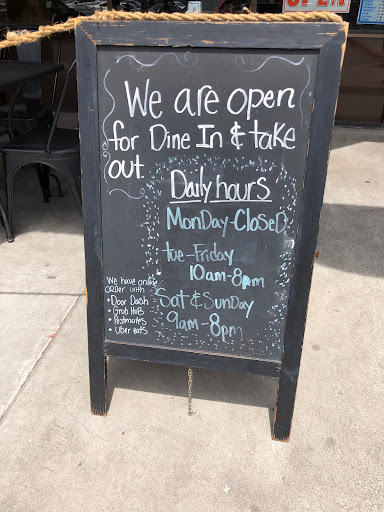 OPEN
We are open
for Dine In & take
out
Daily hours
Monday-Closed
Tue-Friday
10am-8pm
Sat & Sunday
9am-8pm
We have online
order with
• Door Dash
• Grub Hub
• Postmates
• Uber eats